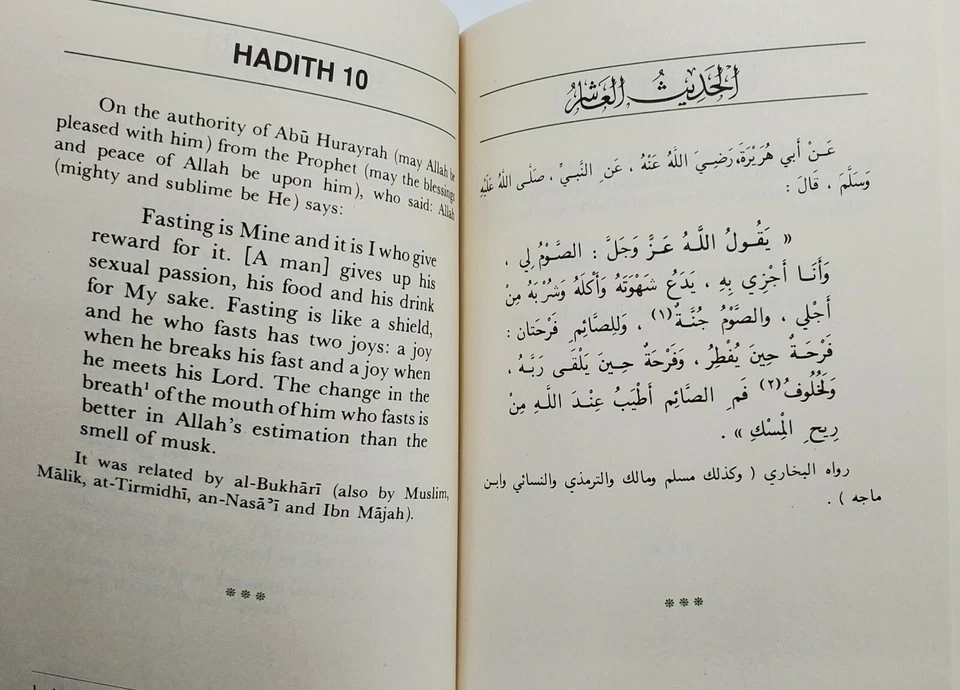 HADITH 10
On the authority of Abū Hurayrah (may Allah be
pleased with him) from the Prophet (may the blessings
and peace of Allah be upon him), who said: Allah
(mighty and sublime be He) says:
Fasting is Mine and it is I who give
reward for it. [A man] gives up his
sexual passion, his food and his drink
for My sake. Fasting is like a shield,
and he who fasts has two joys: a joy
when he breaks his fast and a joy when
he meets his Lord. The change in the
breath¹ of the mouth of him who fasts is
better in Allah's estimation than the
smell of musk.
It was related by al-Bukhārī (also by Muslim,
Mālik, at-Tirmidhī, an-Nasāʾī and Ibn Mājah).
***
الحَديثُ العَاشِر
عَنْ أَبي هُرَيْرَةَ، رَضِيَ اللَّهُ عَنْهُ ، عَنِ النَّبيِّ ، صَلَّى اللهُ عَلَيْهِ
وَسَلَّمَ ، قَالَ :
« يَقُولُ اللَّهُ عَزَّ وَجَلَّ : الصَّوْمُ لِي ،
وَأَنَا أَجْزِي بِهِ ، يَدَعُ شَهْوَتَهُ وَأَكْلَهُ وَشُرْبَهُ مِنْ
أَجْلِي ، والصَّوْمُ جُنَّةٌ (١) ، وَلِلصَّائِمِ فَرْحَتَانِ :
فَرْحَةٌ حِينَ يُفْطِرُ ، وَفَرْحَةٌ حِينَ يَلْقَى رَبَّهُ ،
وَلَخُلُوفُ (٢) فَمِ الصَّائِمِ أَطْيَبُ عِنْدَ اللَّهِ مِنْ
رِيحِ الْمِسْكِ » .
رواه البخاري ( وكذلك مسلم ومالك والترمذي والنسائي وابن
ماجه ) .
***